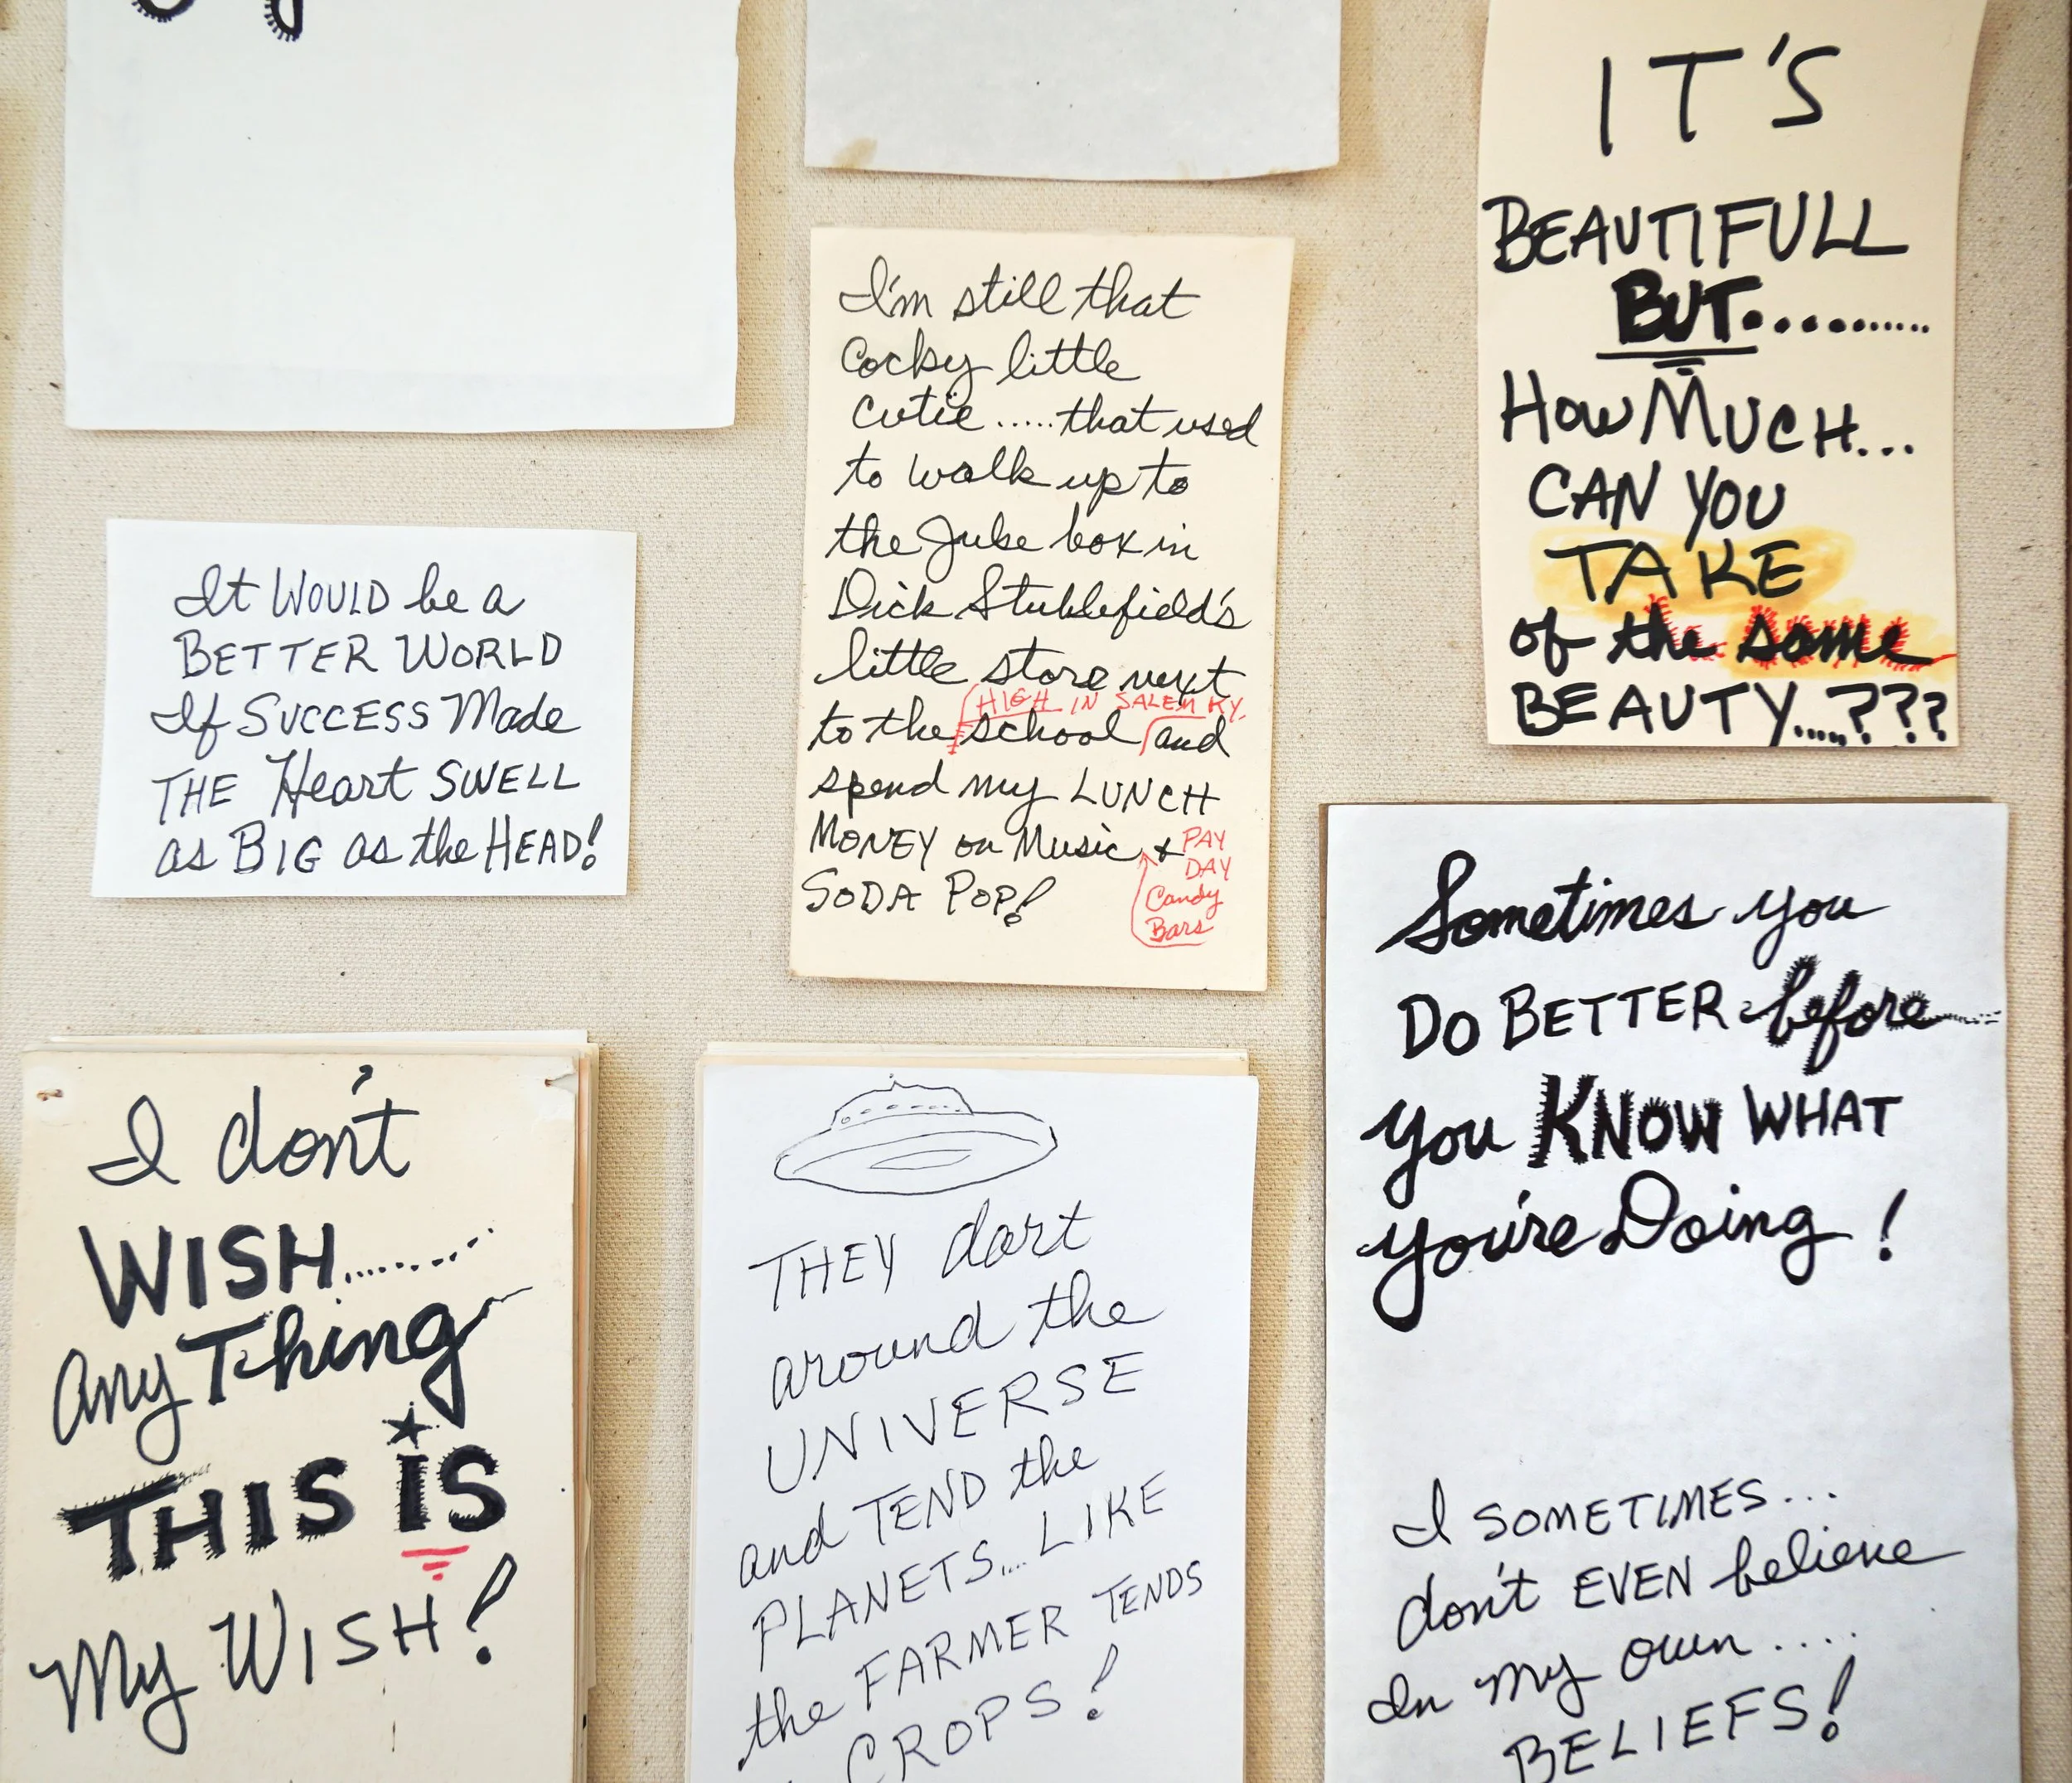 It WOULD be a
BETTER WORLD
If SUCCESS Made
THE Heart SWELL
as BIG as the HEAD!
I'm still that
Cocky little
cutie.....that used
to walk up to
the Juke box in
Dick Stubblefield's
little store next
HIGH IN SALEM KY.
to the school and
spend my LUNCH
MONEY on Music &
PAY
DAY
Candy
Bars
SODA POP!
IT'S
BEAUTIFULL
BUT..........
HOW MUCH...
CAN YOU
TAKE
of the same
BEAUTY....???
I don't
WISH.........
anyThing
THIS IS
My WISH!
THEY dart
around the
UNIVERSE
and TEND the
PLANETS....LIKE
the FARMER TENDS
CROPS!
Sometimes you
DO BETTER before.....
you KNOW WHAT
you're Doing!
I SOMETIMES...
don't EVEN believe
In my own....
BELIEFS!